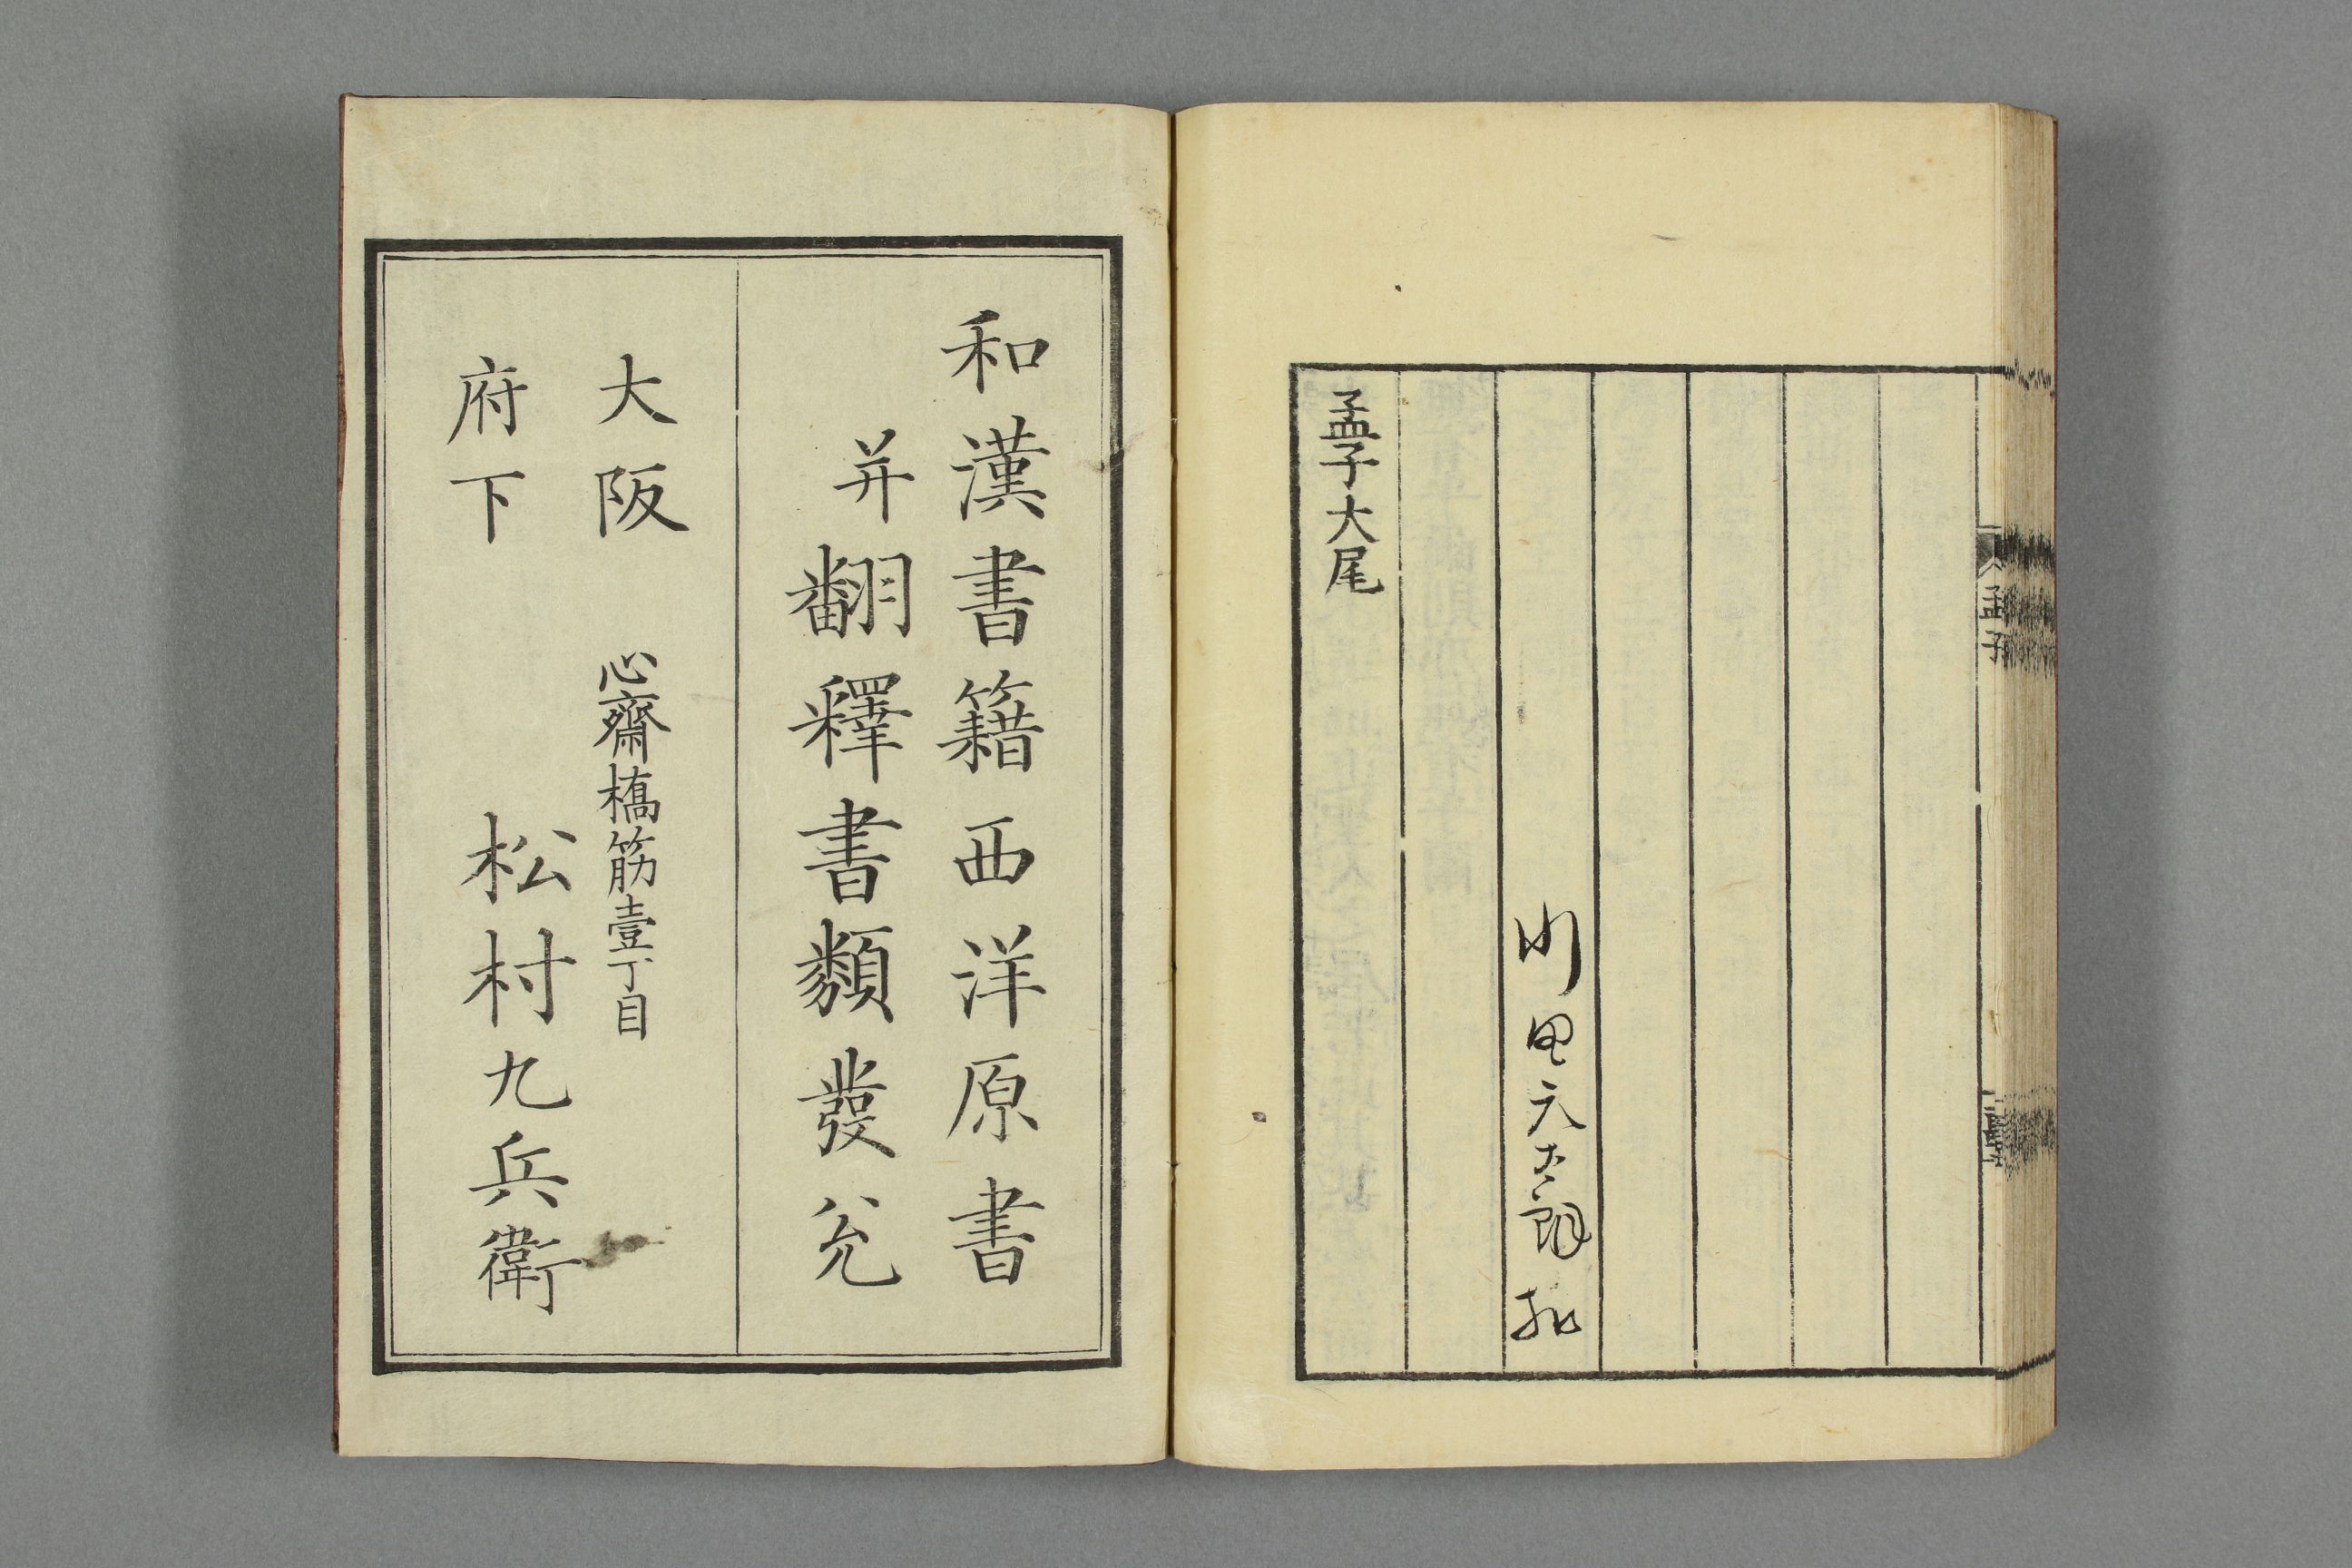 孟子
川田元太郎
孟子大尾
和漢書籍西洋原書
并翻釋書類發兌
大阪 心齋橋筋壹丁目
府下 松村九兵衛